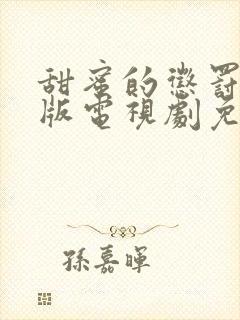 甜蜜的懲罰
版電視劇免
孫嘉暉